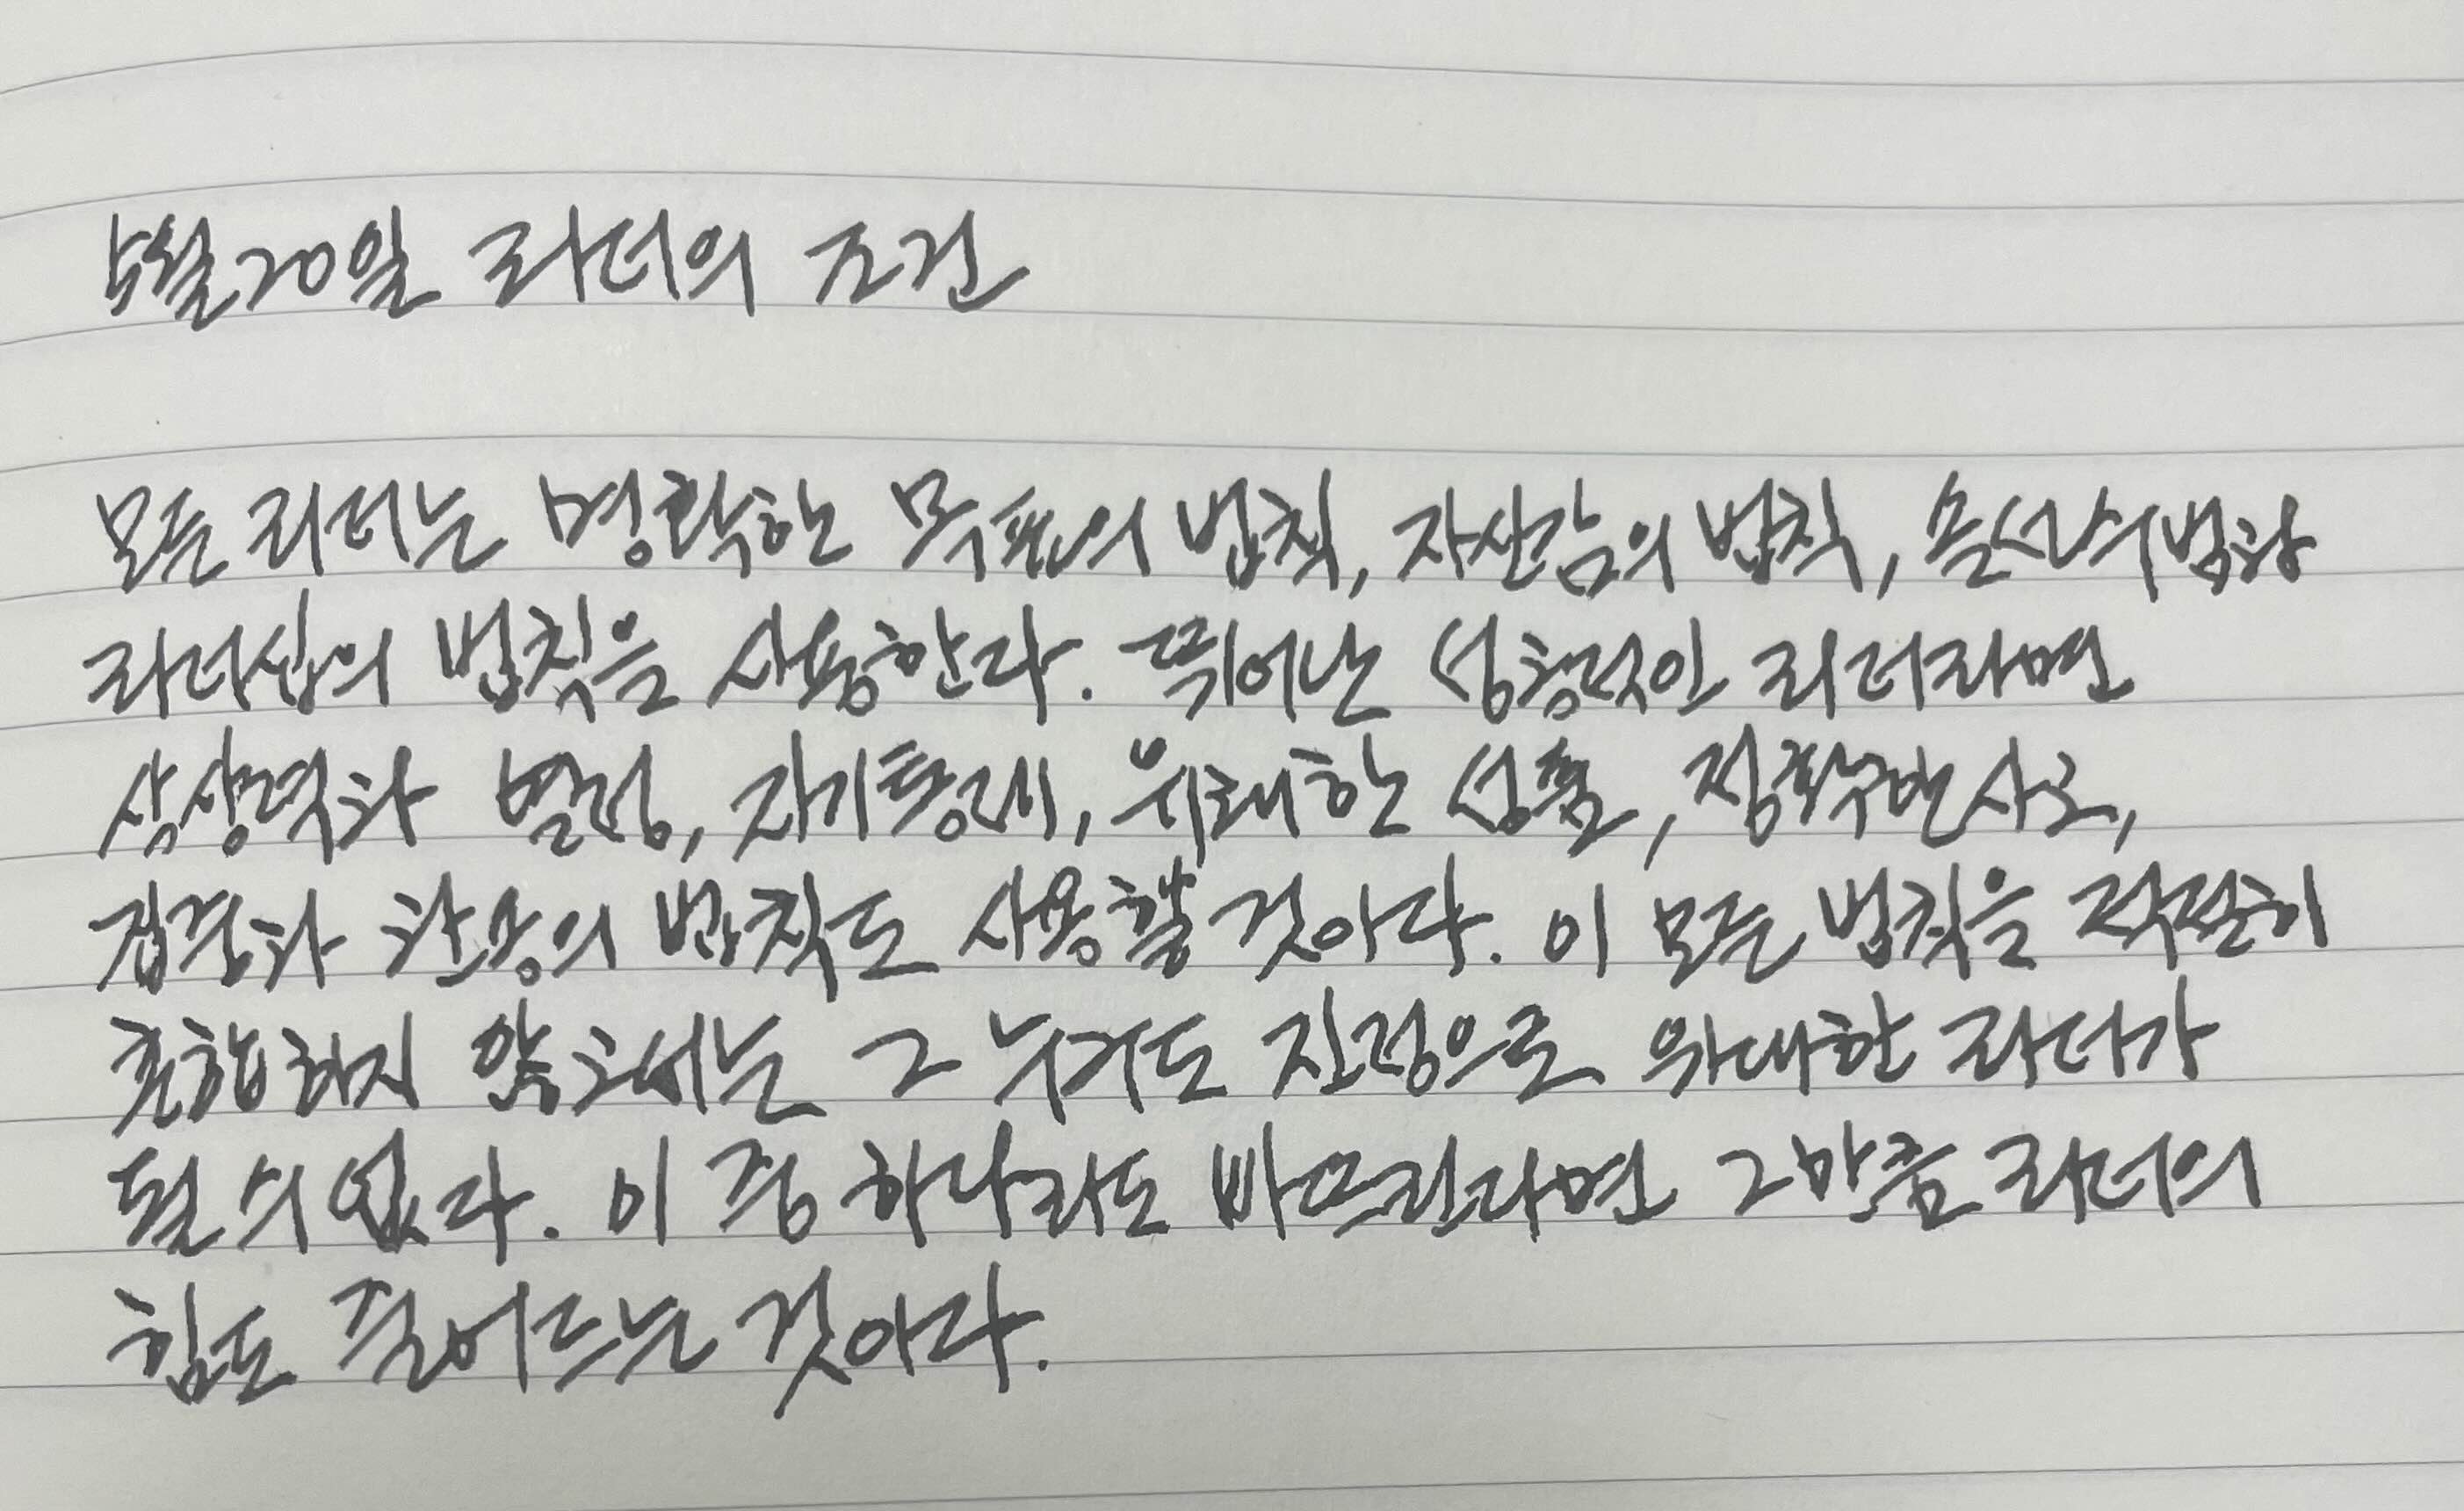 5월 20일 리더의 조건
모든 리더는 명확한 목표의 법칙, 자신감의 법칙, 솔선수범과
리더십의 법칙을 사용한다. 뛰어난 성공적인 리더라면
상상력과 열정, 자기통제, 위대한 성품, 정확한 사고,
집중과 관용의 법칙도 사용할 것이다. 이 모든 법칙을 적절히
조합하지 않고서는 그 누구도 진정으로 위대한 리더가
될 수 없다. 이 중 하나라도 빠뜨린다면 그만큼 리더의
힘도 줄어드는 것이다.